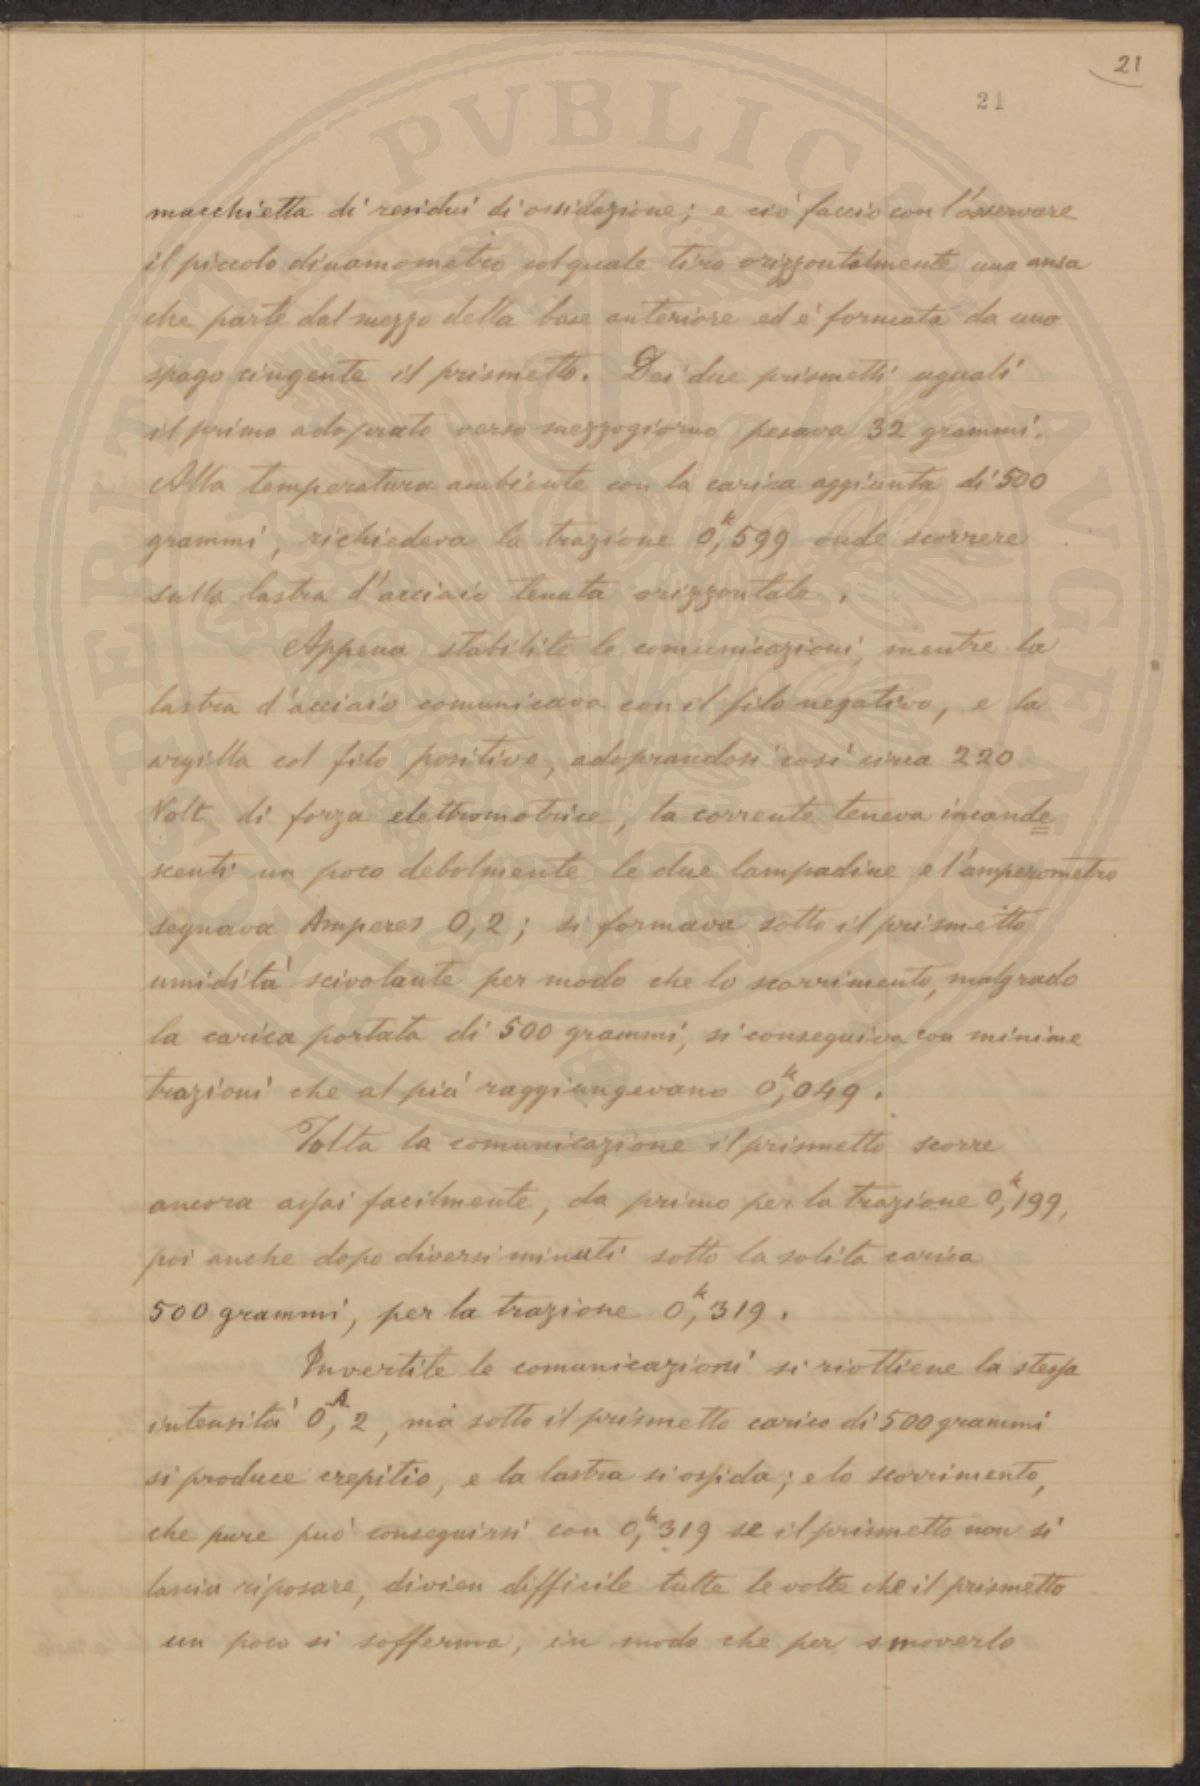 21
21
macchietta di residui di ossidazione; e ciò faccio con l'osservare
il piccolo dinamometro col quale tiro orizzontalmente una ansa
che parte dal mezzo della base anteriore ed è formata da uno
spago cingente il prismetto. Dei due prismetti uguali
il primo adoprato verso mezzogiorno pesava 32 grammi.
Alla temperatura ambiente con la carica aggiunta di 500
grammi, richiedeva la trazione 0,ᵏ599 onde scorrere
sulla lastra d'acciaio tenuta orizzontale.
Appena stabilite le comunicazioni, mentre la
lastra d'acciaio comunicava con il filo negativo, e la
argilla col filo positivo, adoprandosi così circa 220
Volt di forza elettromotrice, la corrente teneva incande
scenti un poco debolmente le due lampadine e l'amperometro
segnava Amperes 0,2; si formava sotto il prismetto
umidità scivolante per modo che lo scorrimento, malgrado
la carica portata di 500 grammi, si conseguiva con minime
trazioni che al più raggiungevano 0,ᵏ049.
Tolta la comunicazione il prismetto scorre
ancora assai facilmente, da primo per la trazione 0,ᵏ199,
poi anche dopo diversi minuti sotto la solita carica
500 grammi, per la trazione 0,ᵏ319.
Invertite le comunicazioni si riottiene la stessa
intensità 0,ᴬ2, ma sotto il prismetto carico di 500 grammi
si produce crepitio, e la lastra si ossida; e lo scorrimento,
che pure può conseguirsi con 0,ᵏ319 se il prismetto non si
lascia riposare, divien difficile tutte le volte che il prismetto
un poco si sofferma, in modo che per smoverlo